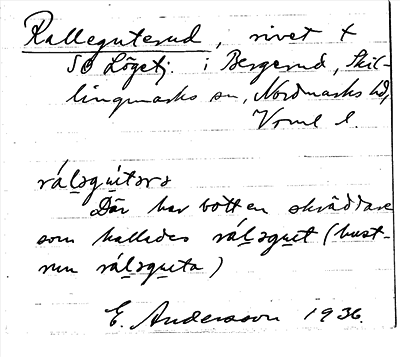 Ralleguterud, rivet t
SO Lögstj. i Bergerud, Skil-
lingmarks sn, Nordmarks hd,
Vrml l.
rálǝgu̲tǝrs
Där har bott en skräddare
som kallades rálǝgu̲t (hust-
run rálǝgu̲ta)
E. Andersson 1936.